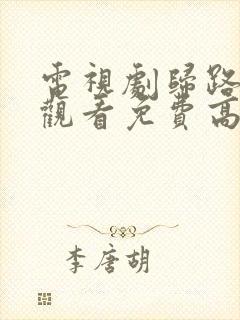 電視劇歸路
觀看免費高
李唐胡